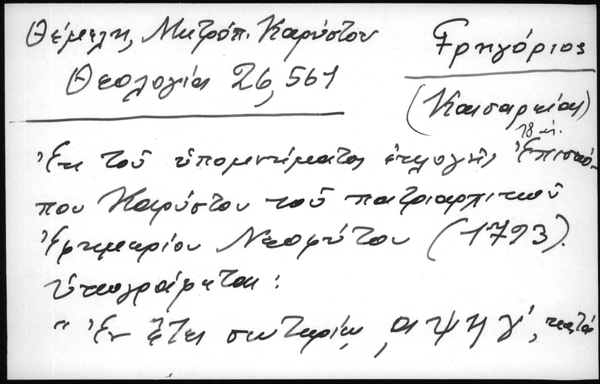 Θέμελη, Μητρόπ. Καρύστου
Θεολογία 26,561
Γρηγόριος
(Καισαρείας)
18 αι.
Ἐκ τοῦ ὑπομνήματος ἐκλογῆς Ἐπισκό-
που Καρύστου τοῦ πατριαρχικοῦ
Ἐφημερίου Νεοφύτου (1793).
ὑπογράφεται:
"Ἐν ἔτει σωτηρίῳ ͵αψϟγ´, κατὰ